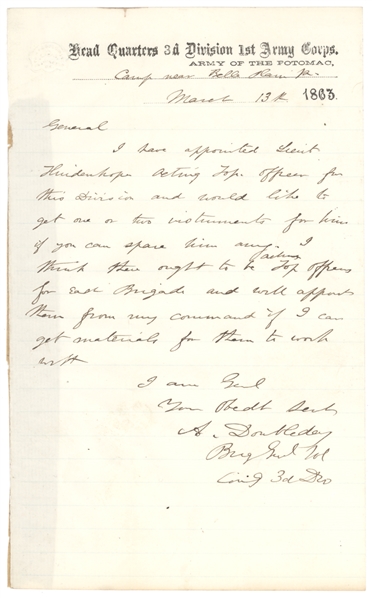 Head Quarters 3d Division 1st Army Corps.
ARMY OF THE POTOMAC,
Camp near Belle Plain Va.
March 13th 1863.
General
I have appointed Lieut.
acting Top. officer for
this Division and would like to
get one or two instruments for him
if you can spare him any. I
think there ought to be acting Top officers
for each Brigade and will appoint
them from my command if I can
get materials for them to work
with
I am Genl
Your Obedt Servt
A. Doubleday
Brig Genl Vol
Comg 3d Div